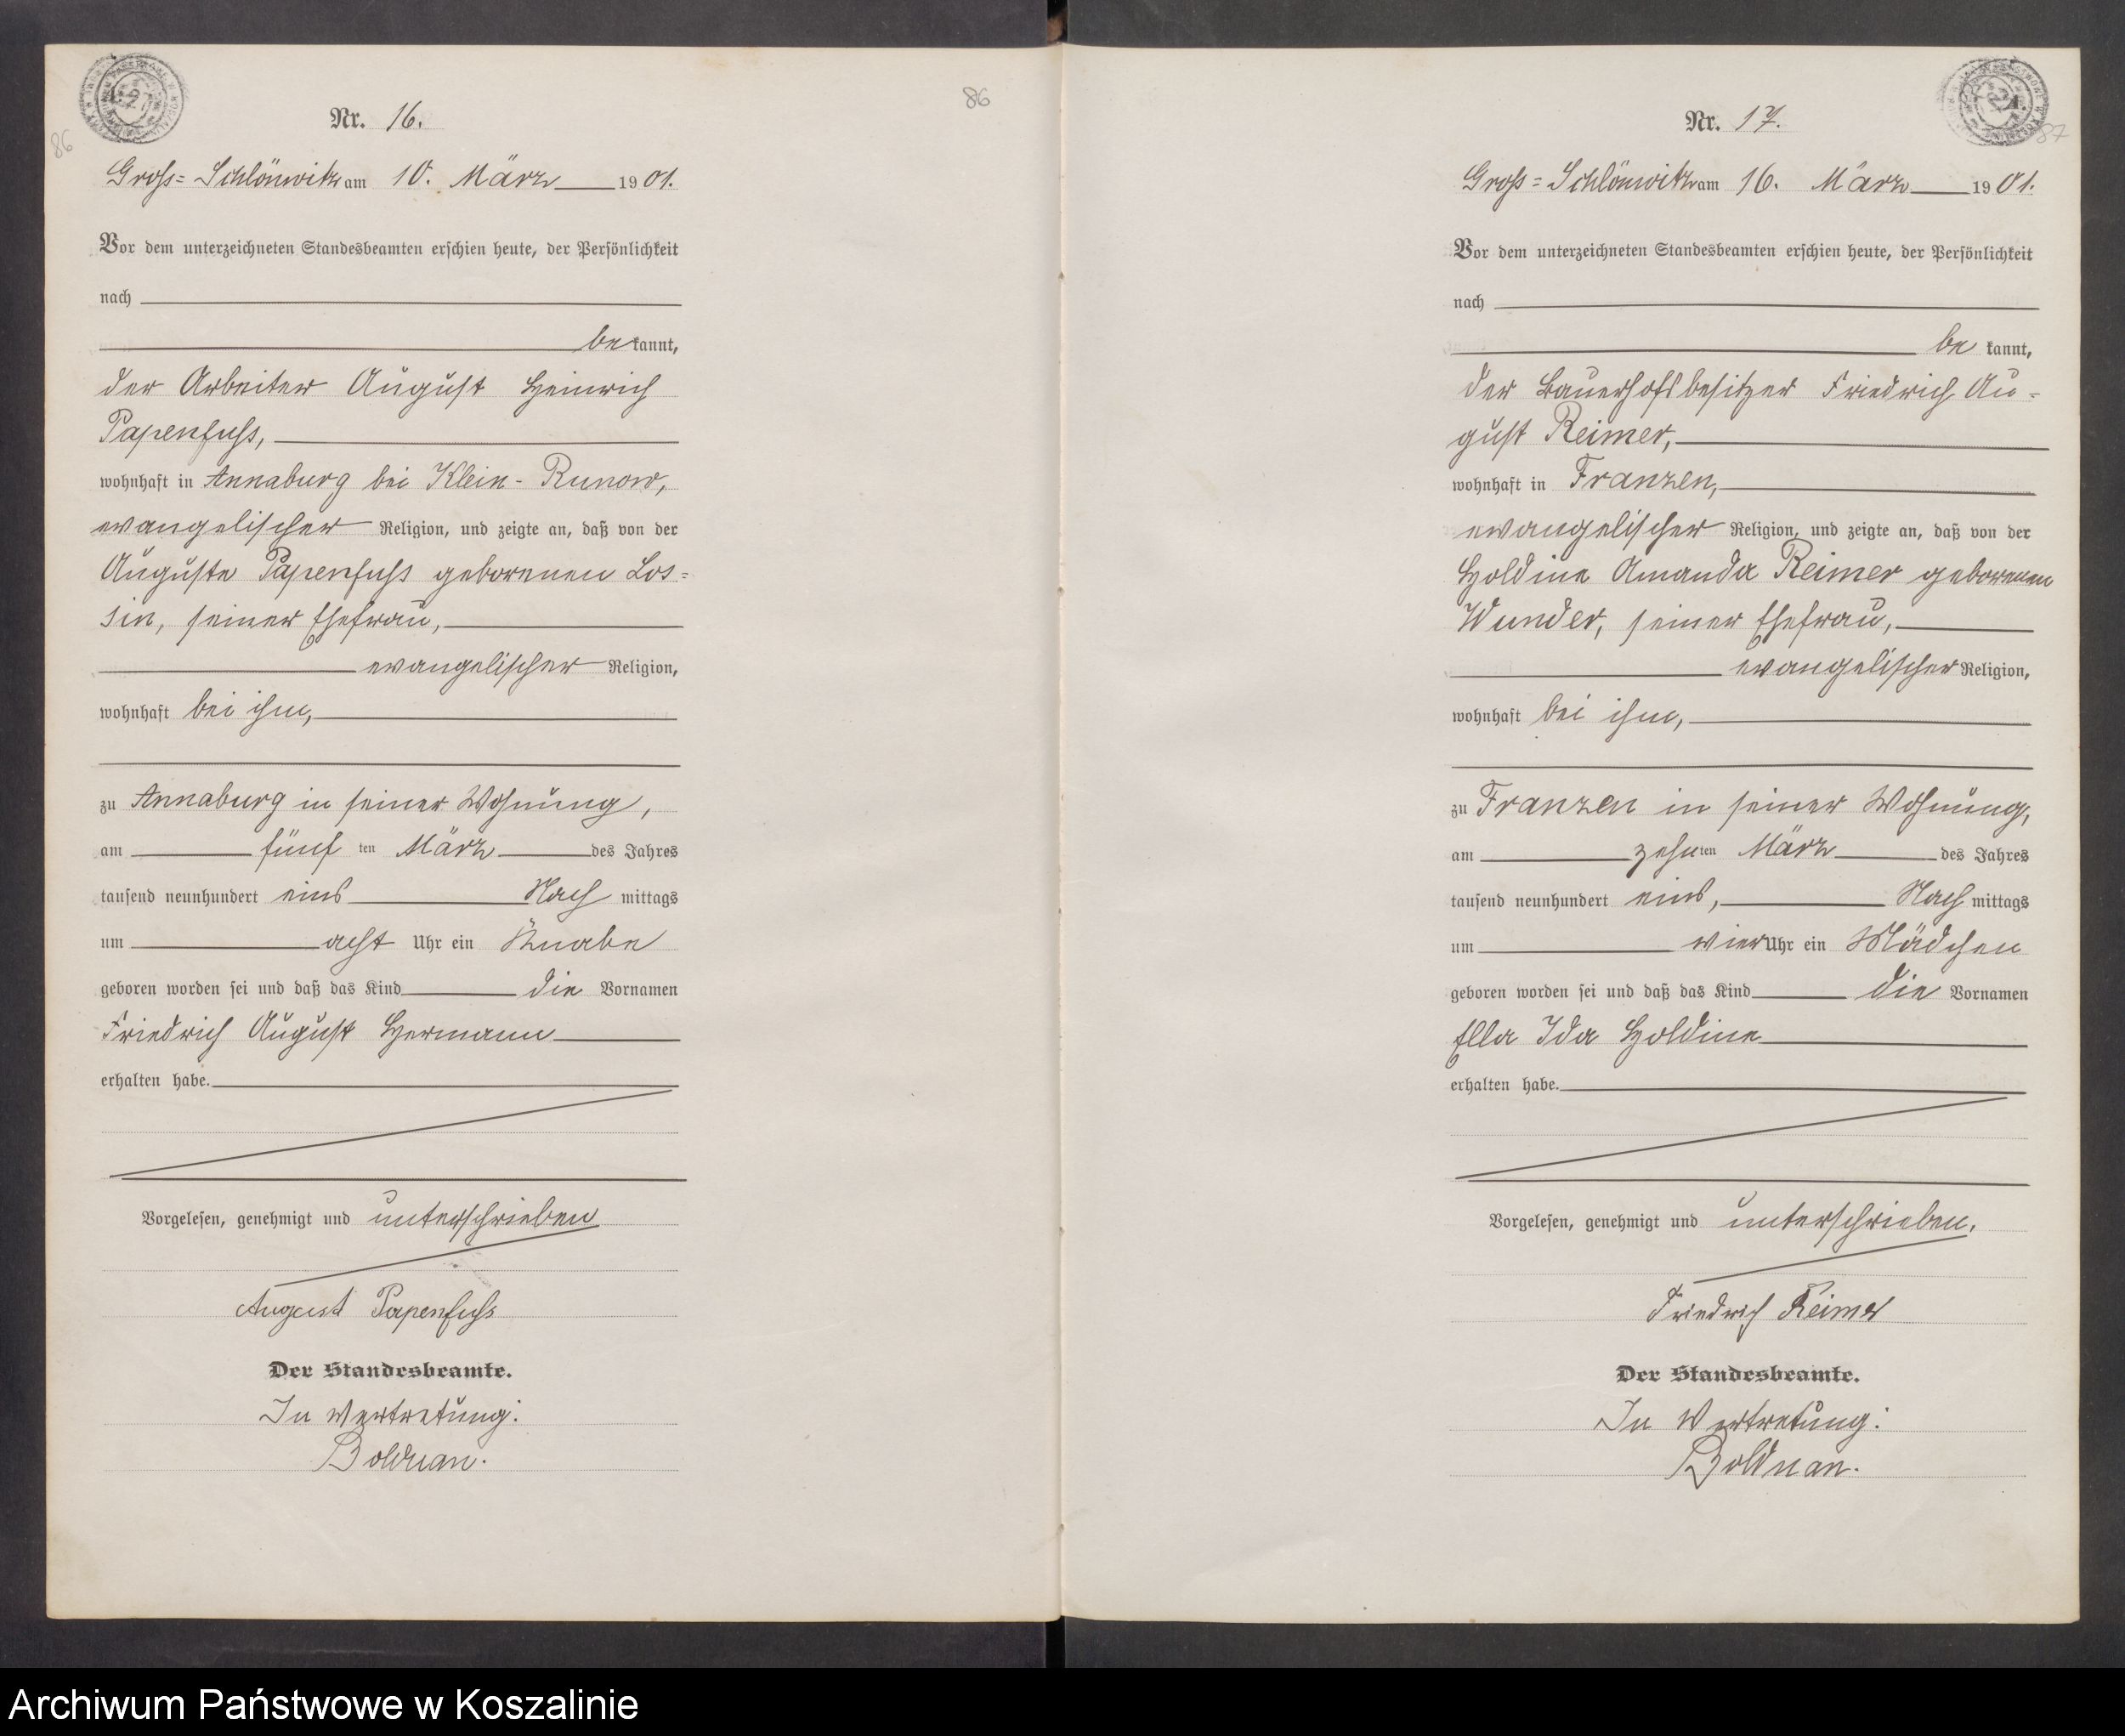 86
Nr. 16.
Gross-Schlönwitz am 10. März 1901.
Vor dem unterzeichneten Standesbeamten erschien heute, der Persönlichkeit
nach
bekannt,
der Arbeiter August Heinrich
Papenfuss,
wohnhaft in Annaburg bei Klein-Runow,
evangelischer Religion, und zeigte an, daß von der
Auguste Papenfuss geborenen Los-
sin, seiner Ehefrau,
evangelischer Religion,
wohnhaft bei ihm,
zu Annaburg in seiner Wohnung,
am fünften März des Jahres
tausend neunhundert eins Nachmittags
um acht Uhr ein Knabe
geboren worden sei und daß das Kind die Vornamen
Friedrich August Hermann
erhalten habe.
Vorgelesen, genehmigt und unterschrieben
August Papenfuss
Der Standesbeamte.
In Vertretung:
Bolduan.
86
Nr. 17.
87
Gross-Schlönwitz am 16. März 1901.
Vor dem unterzeichneten Standesbeamten erschien heute, der Persönlichkeit
nach
bekannt,
der Bauerhofsbesitzer Friedrich Au-
gust Reimer,
wohnhaft in Franzen,
evangelischer Religion, und zeigte an, daß von der
Holdine Amanda Reimer geborenen
Wunder, seiner Ehefrau,
evangelischer Religion,
wohnhaft bei ihm,
zu Franzen in seiner Wohnung,
am zehnten März des Jahres
tausend neunhundert eins, Nachmittags
um vier Uhr ein Mädchen
geboren worden sei und daß das Kind die Vornamen
Ella Ida Holdine
erhalten habe.
Vorgelesen, genehmigt und unterschrieben.
Friedrich Reimer
Der Standesbeamte.
In Vertretung:
Bolduan.
Archiwum Państwowe w Koszalinie